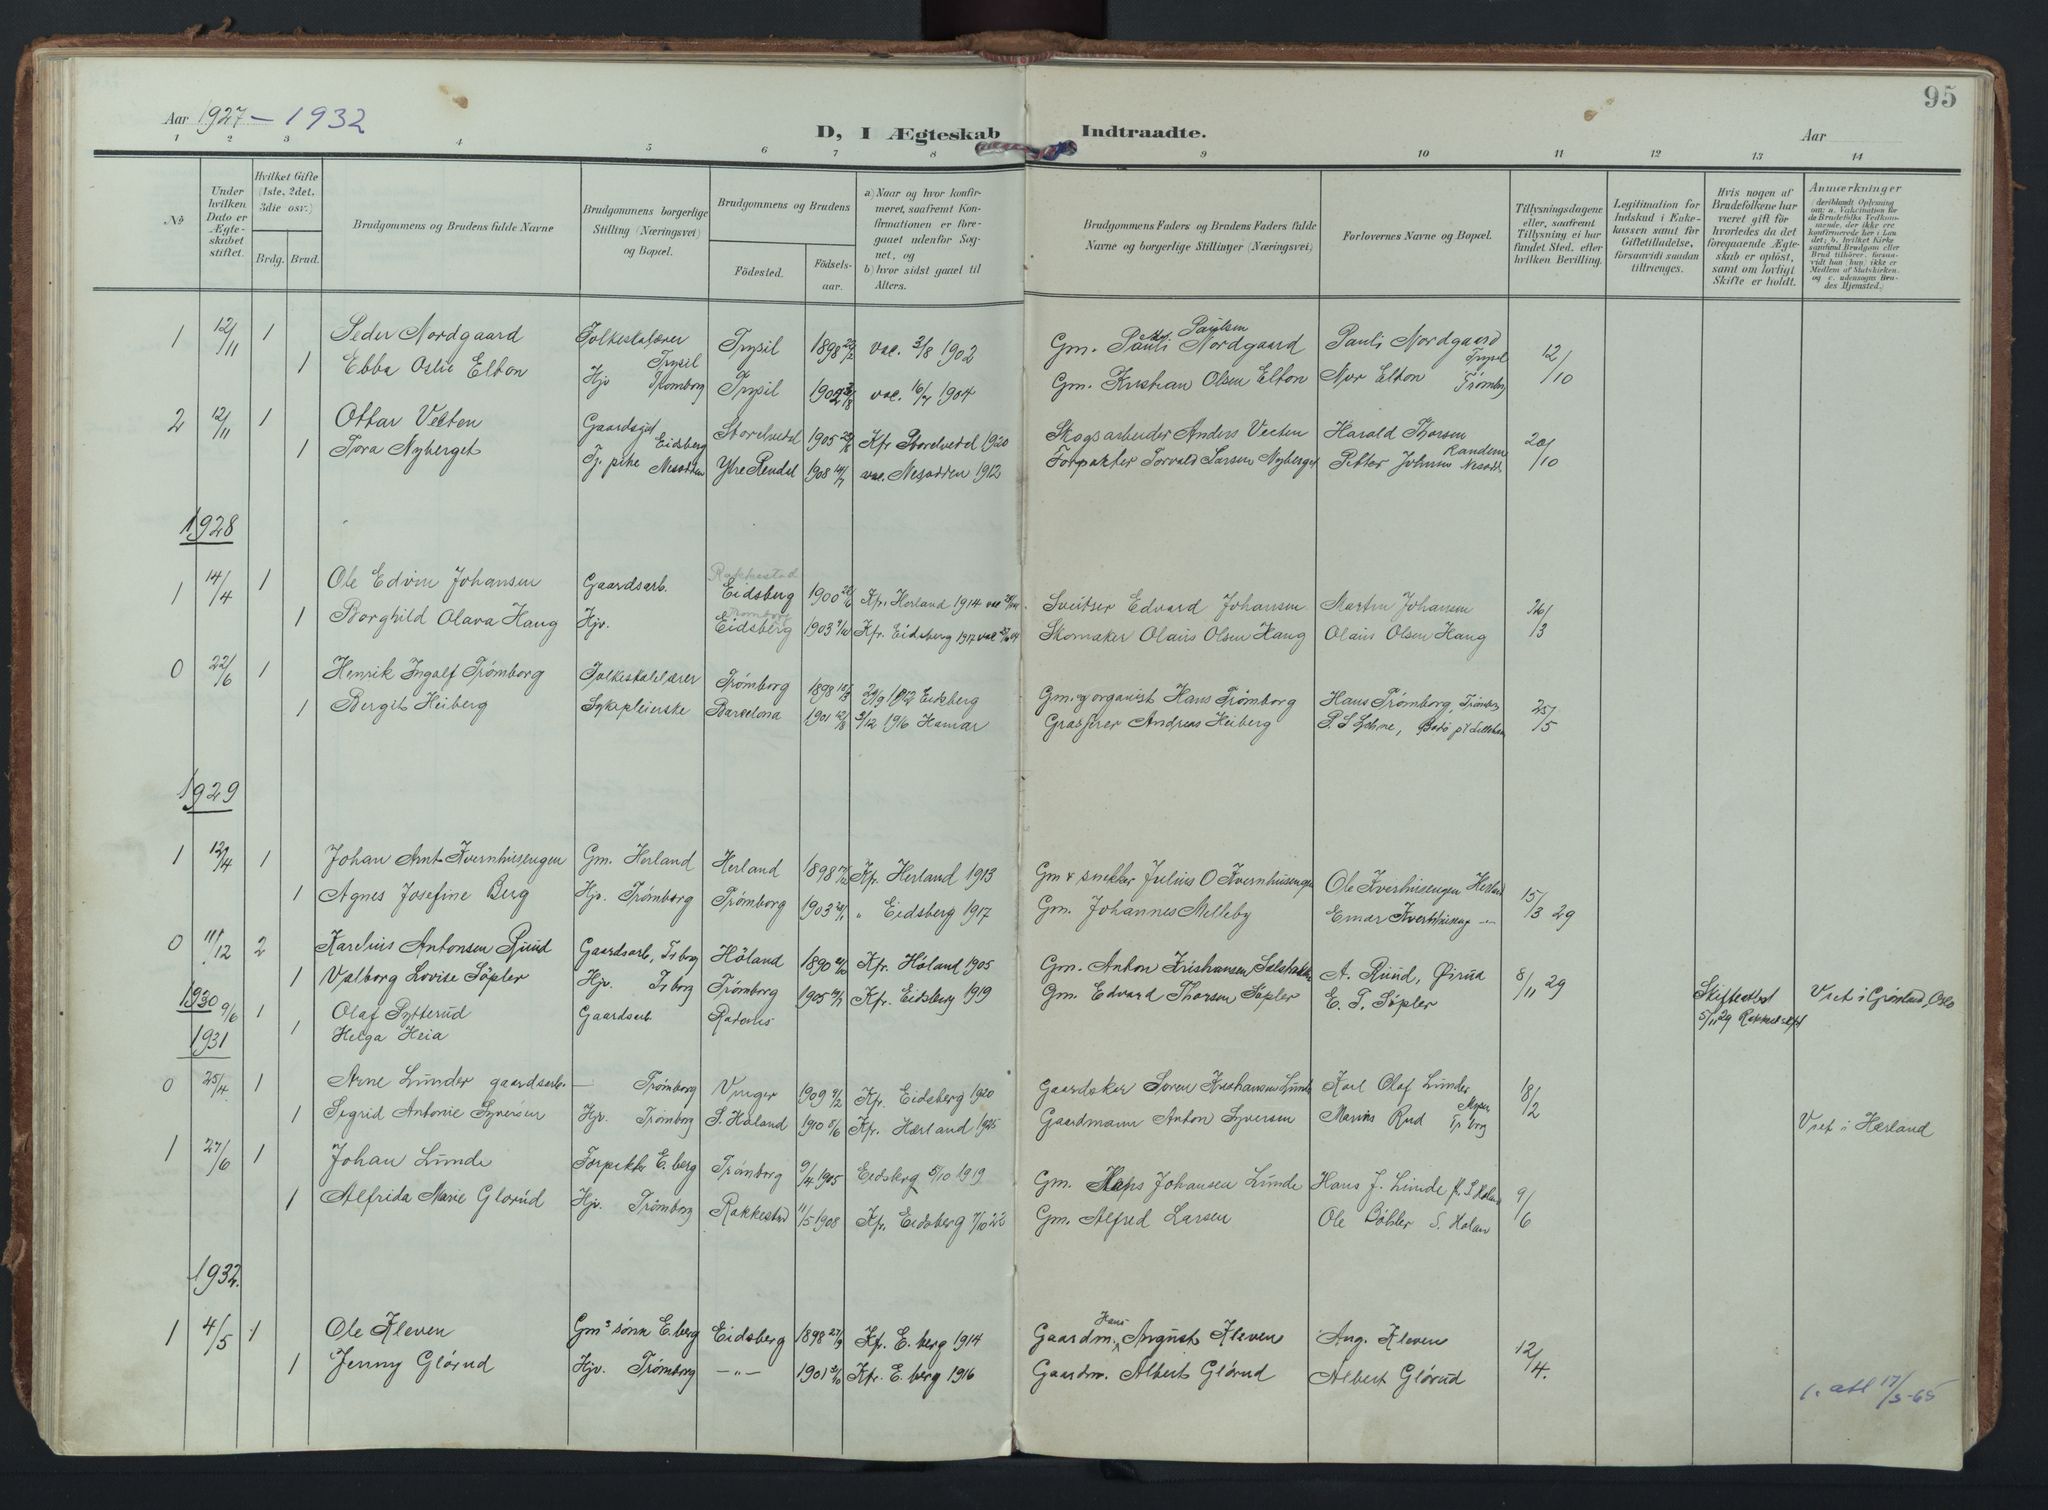 95
Aar 1927 – 1932
D, I Ægteskab Indtraadte.
Aar
1 2 3 4 5 6 7 8 9 10 11 12 13 14
No
Under hvilken Dato er Ægteskabet stiftet.
Hvilket Gifte (1ste, 2det, 3die osv.)
Brdg. Brud.
Brudgommens og Brudens fulde Navne
Brudgommens borgerlige Stilling (Næringsvei) og Bopæl.
Brudgommens og Brudens
Fødested.
Fødselsaar.
a) Naar og hvor konfirmeret, saafremt Konfirmationen er foregaaet udenfor Sognet, og
b) hvor sidst gaaet til Alters.
Brudgommens Faders og Brudens Faders fulde Navne og borgerlige Stillinger (Næringsvei)
Forlovernes Navne og Bopæl.
Tillysningsdagene eller, saafremt Tillysning ei har fundet Sted, efter hvilken Bevilling.
Legitimation for Indskud i Enkekassen samt for Giftetilladelse, forsaavidt saadan tiltrenges.
Hvis nogen af Brudefolkene har været gift før hvorledes da det foregaaende Ægteskab er opløst, samt om lovligt Skifte er holdt.
Anmærkninger
(deriblandt Oplysning om: a. Vakcination for de Brudefolks Vedkommende, der ikke ere konfirmerede her i Landet; b. hvilket Kirkesamfund Brudgom eller Brud tilhører, forsaavidt han (hun) ikke er Medlem af Statskirken, og c. udensogns Brudes Hjemsted.)
1 12/11 1 Peder Nordgaard Folkeskolærer Trysil Trysil 1898 vac. 3/8 1902 Gm. Pauli Paulsen Nordgaard Pauli Nordgaard Trysil 12/10
1 Ebba Oslie Elton Hjv Trømborg Trysil 1902 vac. 16/7 1904 Gm. Kristian Olsen Elton Elton Trømb
2 12/11 1 Ottar Vesten Gaardsgut Eidsberg Storelvedal 1905 Kfr Storelvedal 1920 Skogsarbeider Anders Vesten Harald Thorsen Randem 20/10
1 Tora Nyberget Tj. pike Nesodden Ytre Rendal 1908 14/7 vac. Nesodden 1912 Forpakter Torvald Larsen Nyberget Petter Johnsen Nesodd.
1928
1 14/4 1 Ole Edvin Johansen Gaardsarb. Rakkestad Eidsberg 1900 Kfr. Herland 1914 vac Sveitser Edvard Johansen Martin Johansen 26/3
1 Borghild Olava Haug Hjv. Trømborg Eidsberg 1903 9/10 Kfr. Eidsberg 1917 vac Skomaker Olaus Olsen Haug Olaus Olsen Haug
0 22/6 1 Henrik Ingolf Trømborg Folkeskolelærer Trømborg 1898 29/9 1912 Eidsberg Gm. og organist Hans Trømborg Hans Trømborg, Trømb 25/5
1 Bergit Heiberg Sykepleierske Barcelona 1901 12/8 3/12 1916 Hamar Grosserer Andreas Heiberg
1929
1 12/4 1 Johan Arnt Kvernhusengen Gm. Herland Herland 1898 Kfr. Herland 1913 Gm & snekker Julius O Kvernhusengen Ole Kvernhusengen Herland 15/3 29
1 Agnes Josefine Berg Hjv. Trømborg Trømborg 1903 „ Eidsberg 1917 Gm. Johannes Melleby Einar Kvernhuseng –„–
0 11/12 2 Karelius Antonsen Ruud Gaardsarb. Tr borg Höland 1890 Kfr. Höland 1905 Gm. Anton Kristiansen A. Ruud, 8/11 29
1 Valborg Lovise Söpler Hjv. Tr borg Trömborg 1905 Kfr. Eidsberg 1919 Gm. Edvard Thorsen Söpler E. T. Söpler Skifteattest 5/11 29
1930 9/6 1 Olaf Sytterud Gaardsarb. V iet i Grønland, Oslo
1 Helga Heia
1931
0 25/4 1 Arne Lunder gaardsarb. – Trømborg Vinger 1909 9/2 Kfr. Eidsberg 1920 Gaardsker Søren Kristiansen Lunde Karl Olaf Lunder Mysen 18/2
1 Sigrid Antonie Syversen Hjv. Trømborg S. Høland 1910 5/6 Kfr. Hærland 1925 Gaardmann Anton Syversen Marius Rud Tr borg V iet i Hærland
1 27/6 1 Johan Lunde Forpakter E. berg Trømborg 9/4 1905 Eidsberg 5/10 1919 Gm. Hans Johansen Lunde Hans J. Lunde 9/6
1 Alfrida Marie Glorud Hjv. Trömborg Rakkestad 11/5 1908 Kfr. Eidsberg 7/10 22 Gm. Alfred Larsen Ole Böhler S. Holan
1932.
1 4/5 1 Ole Kleven Gms sönn E. berg Eidsberg 1898 27/9 Kfr. E. berg 1914 Gaardm. Hans August Kleven Aug. Kleven 12/4.
1 Jenny Glörud Hjv. Trömborg –„– 1901 Kfr. E. berg 1916 Gaardm. Albert Glörud Albert Glörud
1. att 17/5-65